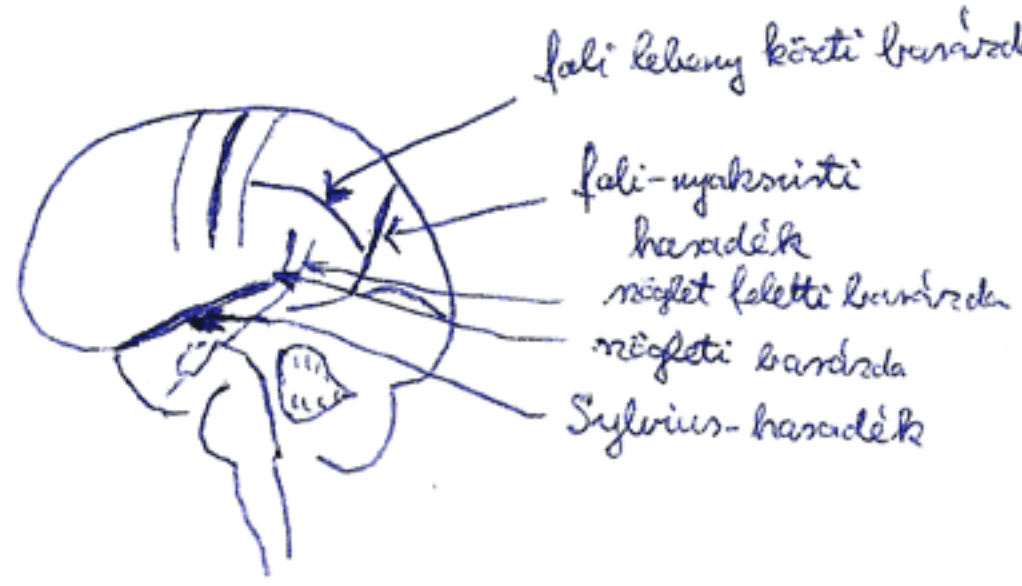 fali lebeny közti barázd
fali-nyakszirti
hasadék
szöglet feletti barázda
szögleti barázda
Sylvius-hasadék